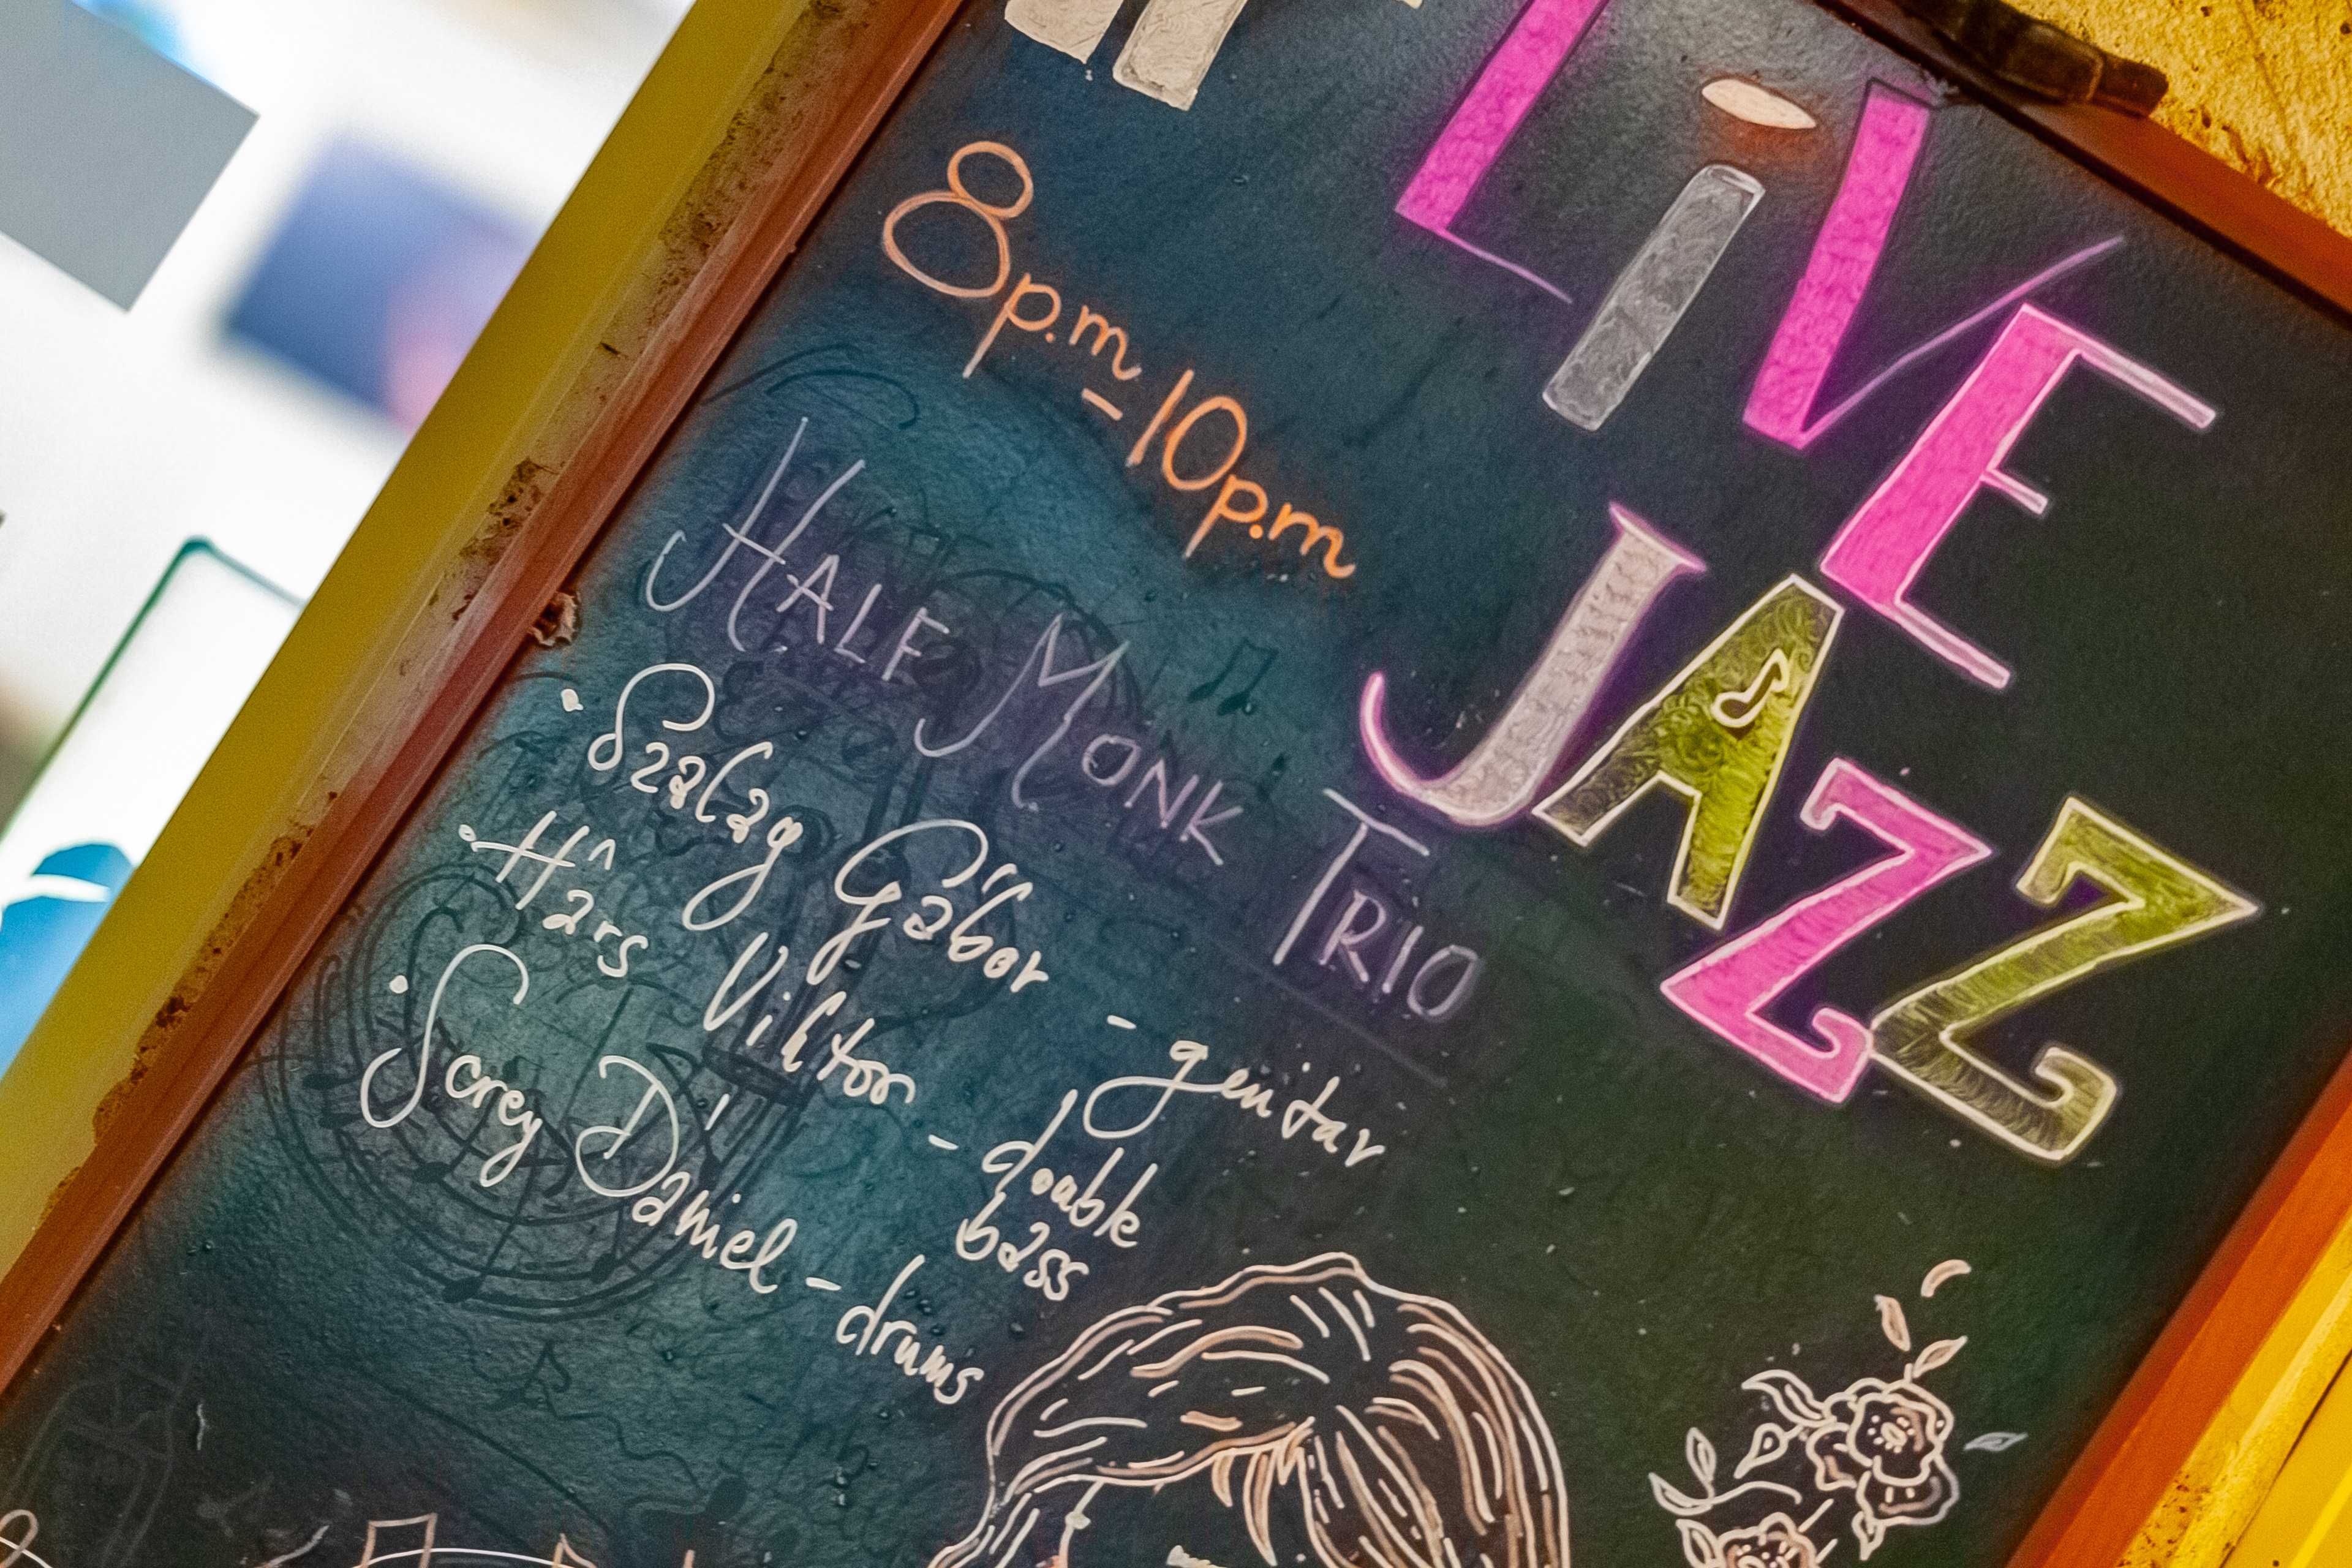 LiVE
JAZZ
8p.m – 10p.m
HALF MONK TRIO
• Szalay Gábor – guitar
• Hârs Viktor – double
bass
• Sorey Dániel – drums